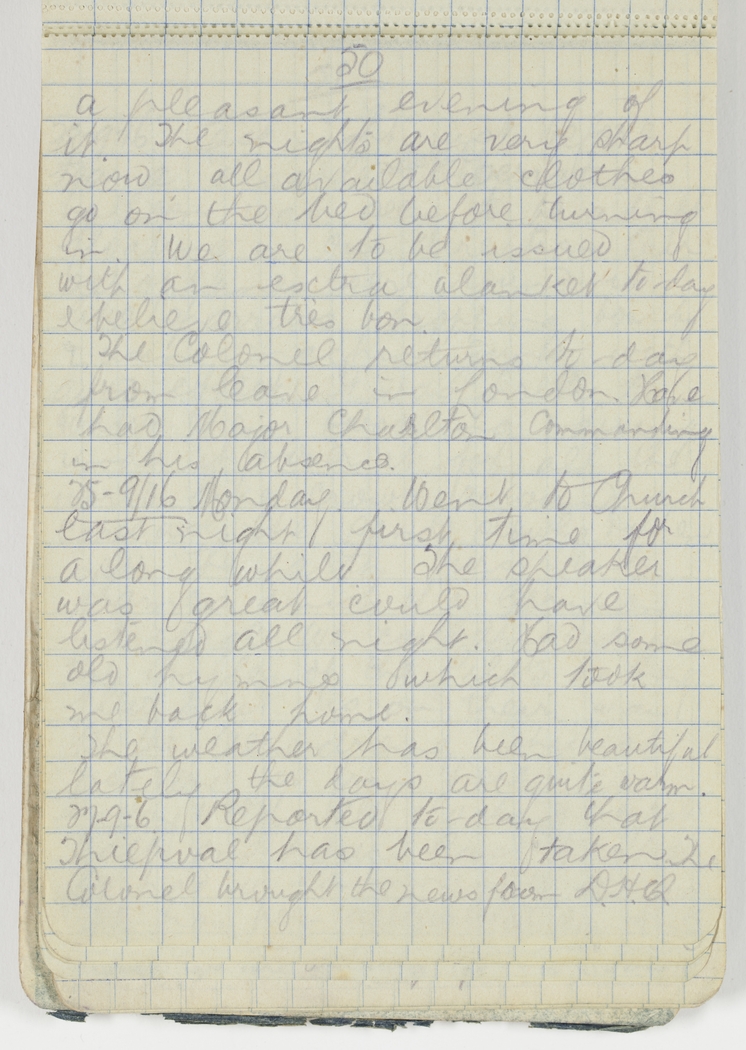 50
a pleasant evening of
it The nights are very sharp
now all available clothes
go on the bed before turning
in. We are to be issued
with an extra blanket to-day
I believe très bon.
The Colonel returns to-day
from leave in London. Have
had Major Charlton Commanding
in his absence.
25-9/16 Monday. Went to Church
last night first time for
a long while The speaker
was great could have
listened all night. Had some
old hymns which took
me back home.
The weather has been beautiful
lately the days are quite warm.
27-9-6 Reported to-day that
Thiepval has been taken. The
Colonel brought the news from D.H.Q